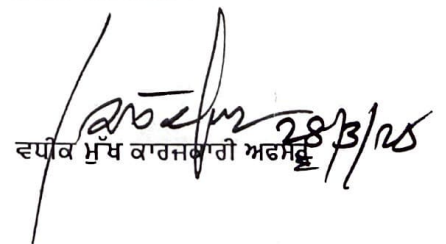 28/3/25
ਵਧੀਕ ਮੁੱਖ ਕਾਰਜਕਾਰੀ ਅਫਸਰ